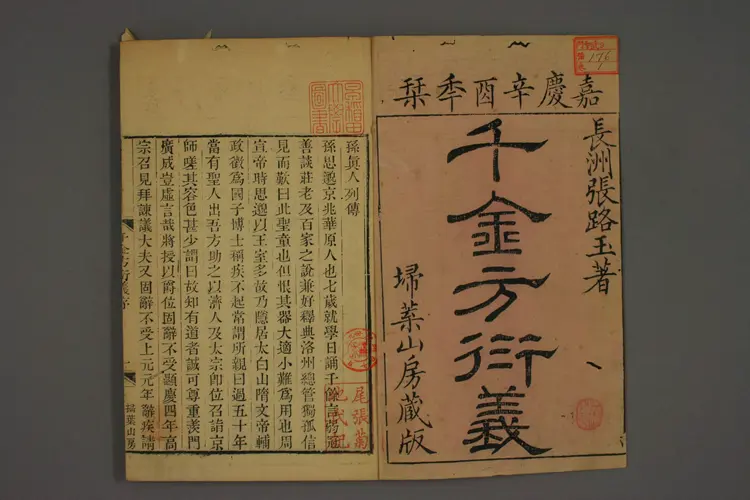 嘉慶辛酉季栞
長洲張路玉著
千金方衍義
埽葉山房藏版
176
孫眞人列傳
孫思邈京兆華原人也七歲就學日誦千餘言弱冠
善談莊老及百家之說兼好釋典洛州總管獨孤信
見而歎曰此聖童也但恨其器大適小難爲用也周
宣帝時思邈以王室多故乃隱居太白山隋文帝輔
政徵爲國子博士稱疾不起常謂所親曰過五十年
當有聖人出吾方助之以濟人及太宗卽位召詣京
師嗟其容色甚少謂曰故知有道者誠可尊重羨門
廣成豈虛言哉將授以爵位固辭不受顯慶四年高
宗召見拜諫議大夫又固辭不受上元元年辭疾請
千金方衍義序
一
掃葉山房
尾張菊